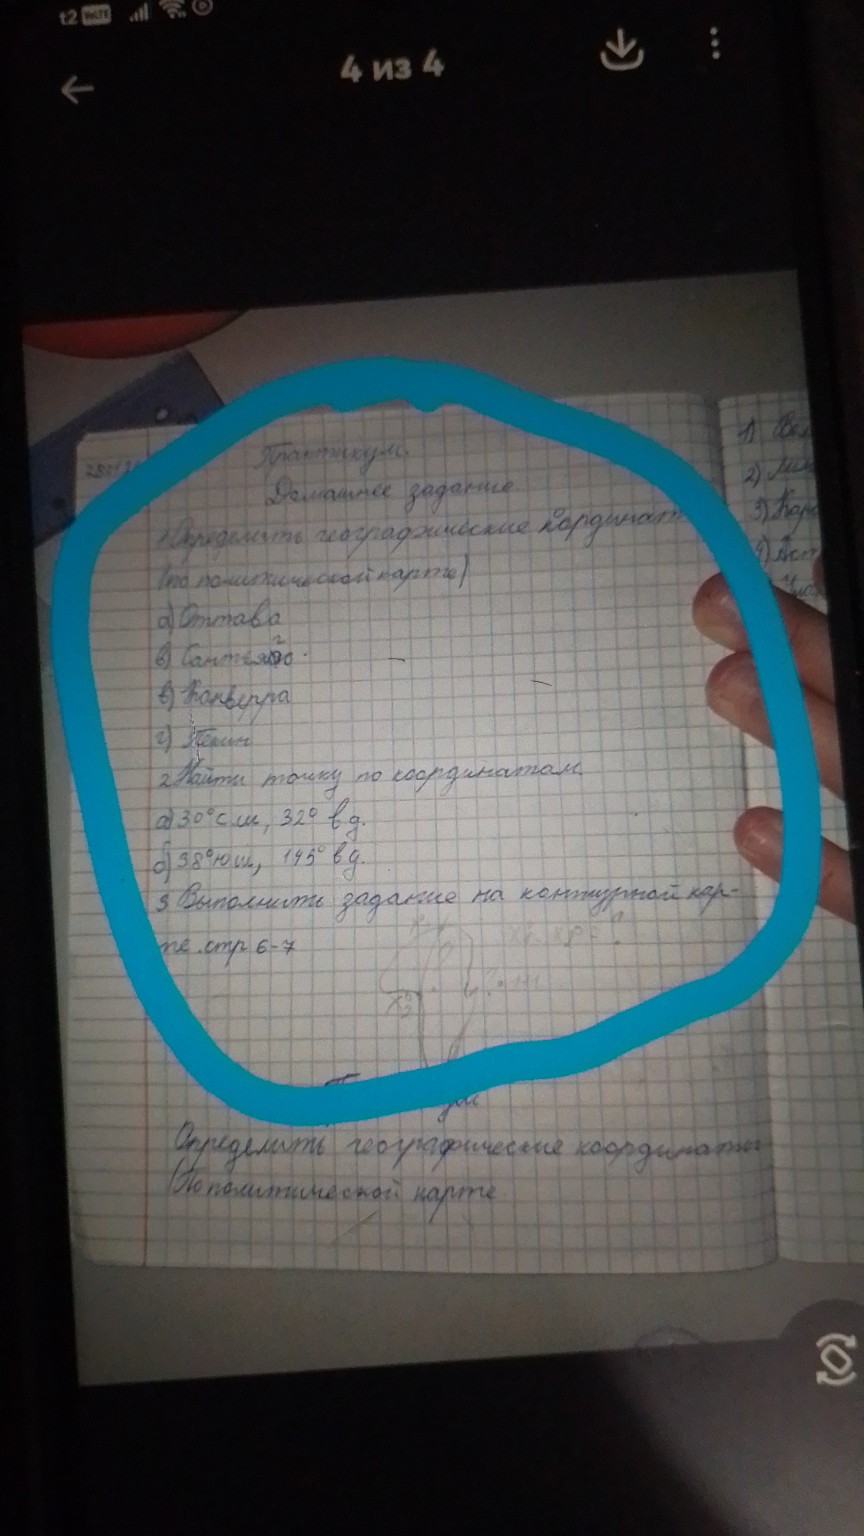 t2 VoLTE
4 из 4
Практикум.
Домашнее задание
1 Определить географические координат
(по политической карте)
а) Оттава
в) Сантьяго.
в) Канверра
г) Пекин
2 Найти точку по координатам.
а) 30° с ш, 32° в д.
б) 38° ю ш, 145° в д.
3 Выполнить задание на контурной кар-
те. стр 6-7
Определить географические координаты
(По политической карте
1)
2)
3)
4) Аст